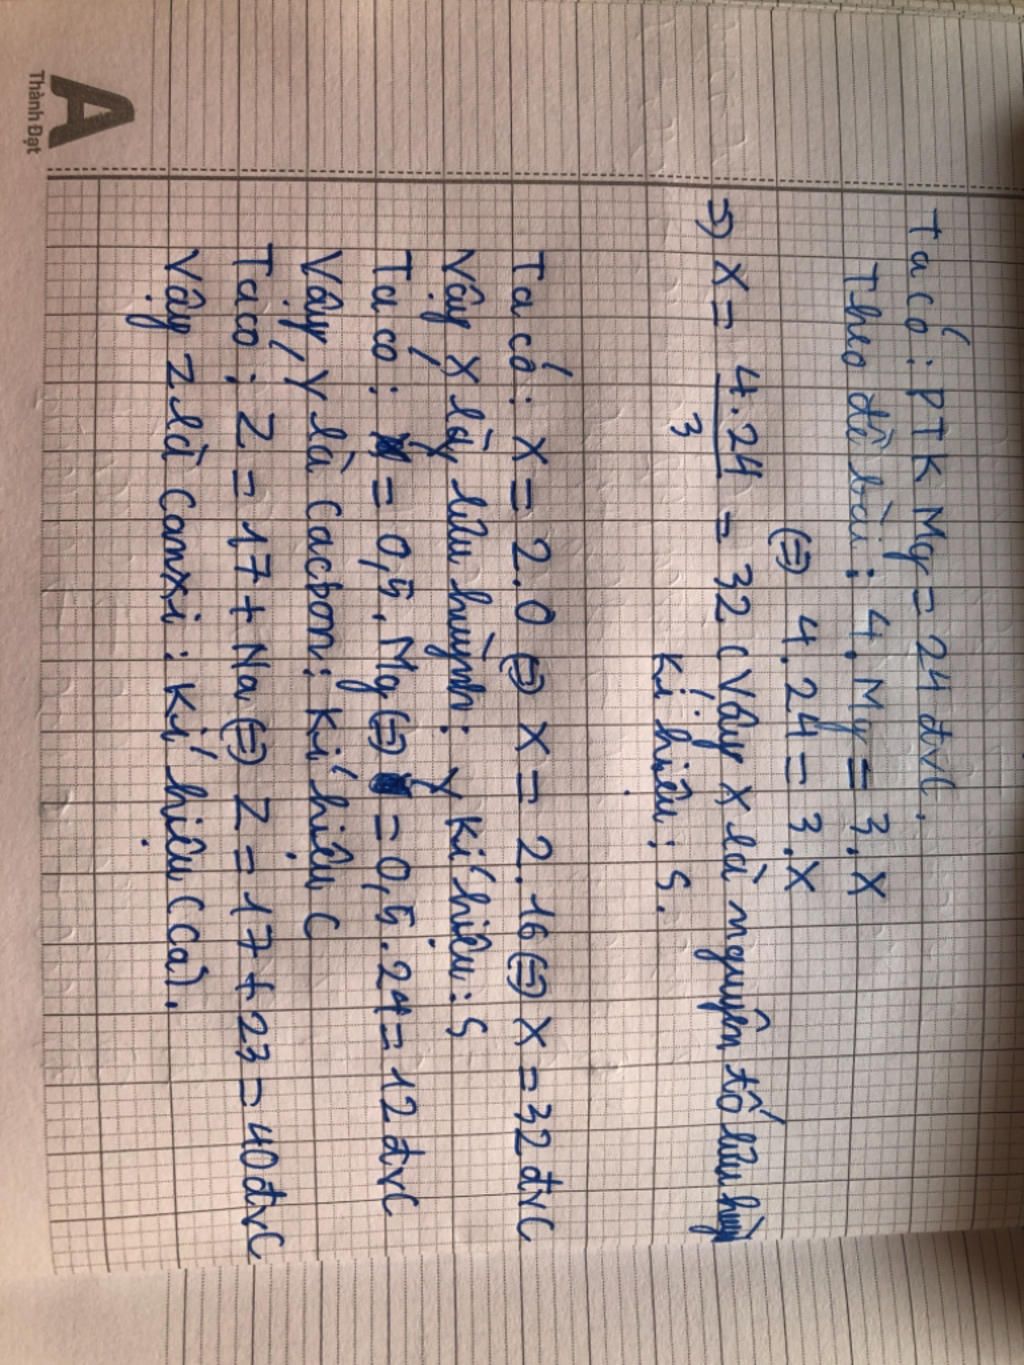 A
Thành Đạt
Ta có: PTK Mg = 24 đvC.
Theo đề bài: 4. Mg = 3. X
(=) 4. 24 = 3. X
=) X = 4. 24 / 3 = 32 (Vậy X là nguyên tố lưu huỳnh
Kí hiệu: S.
Ta có: X = 2. O (=) X = 2. 16 (=) X = 32 đvC
Vậy X là lưu huỳnh: Kí hiệu: S
Ta có: Y = 0,5. Mg (=) Y = 0,5. 24 = 12 đvC
Vậy, Y là Cacbon: Kí hiệu C
Ta có: Z = 17 + Na (=) Z = 17 + 23 = 40 đvC
Vậy Z là Canxi: Kí hiệu (Ca).